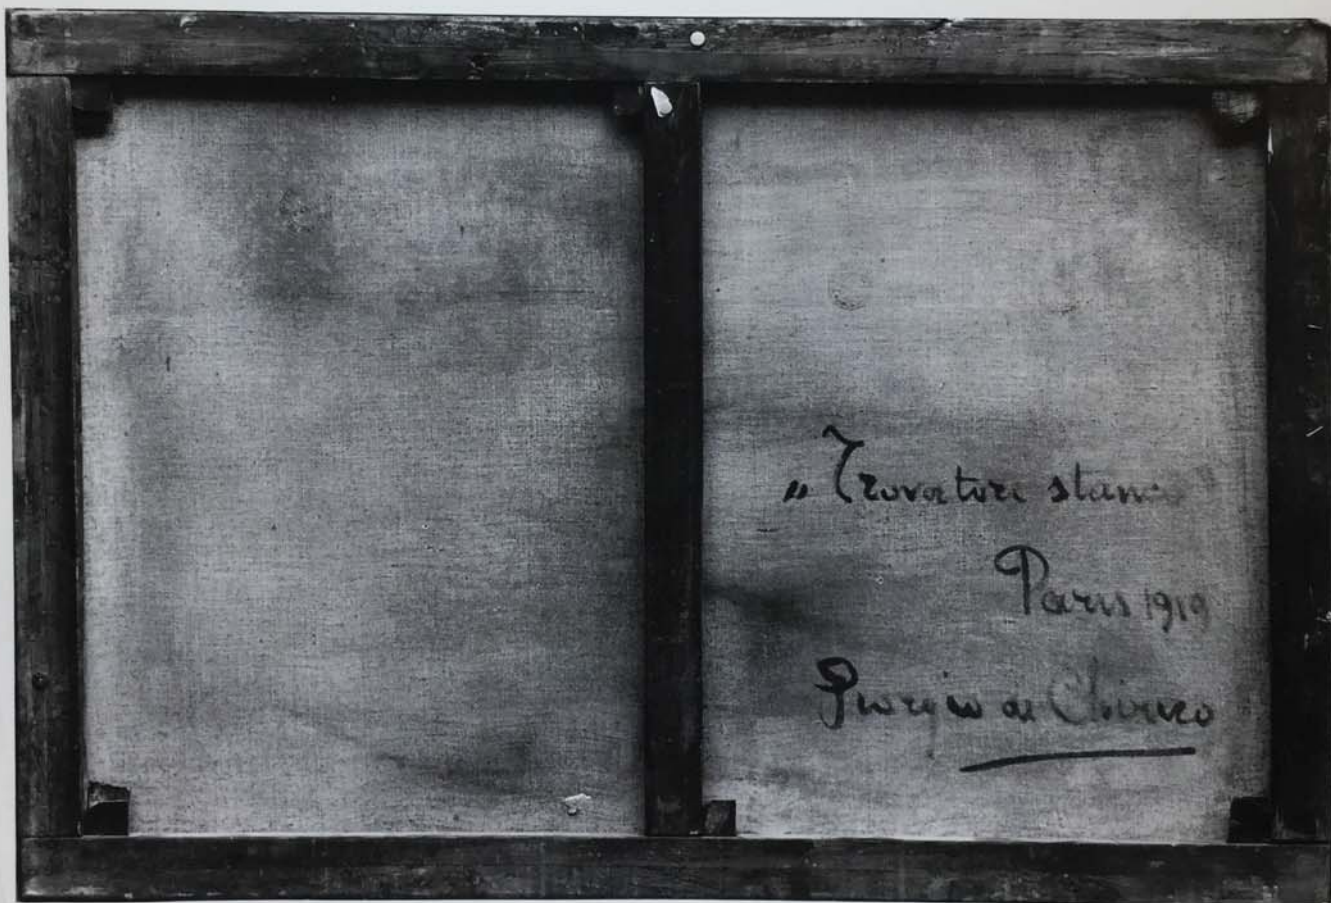 „Trovatore stanco"
Paris 1919
Giorgio de Chirico